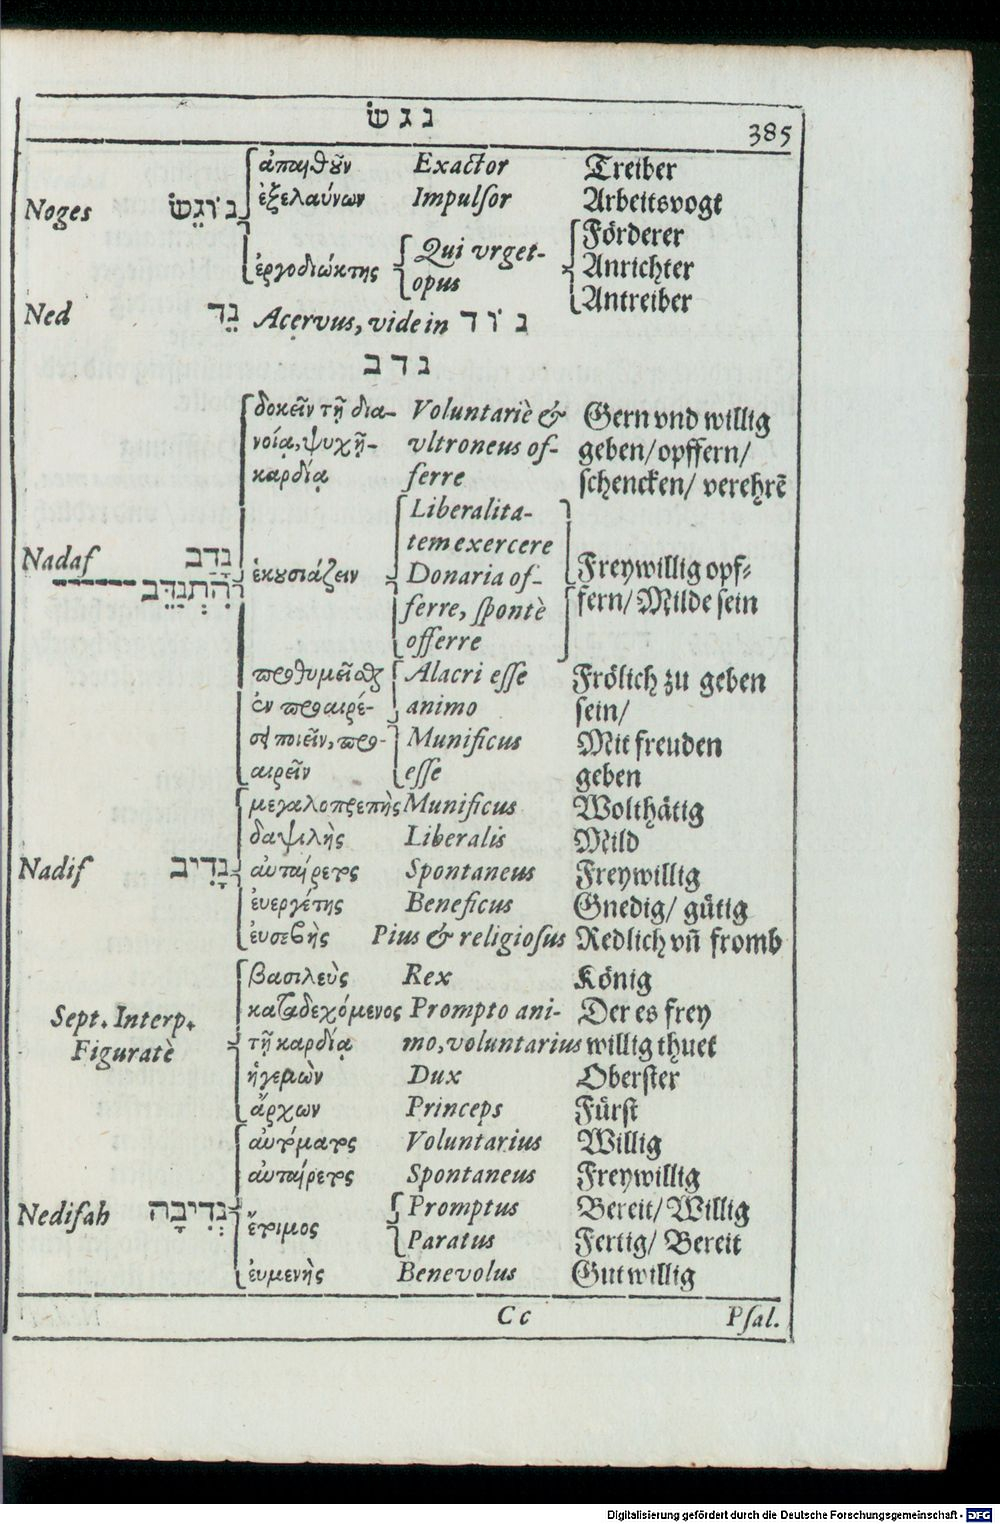 נ ג שׂ
385
ἀπαιτῶν Exactor Treiber
ἐξελαύνων Impulſor Arbeitsvogt
Noges נוֹגֵשׂ
Förderer
ἐργοδιώκτης Qui vrget- Anrichter
opus Antreiber
Ned נֵד Acervus, vide in נ וֹ ד
נ ד ב
δοκεῖν τῇ δια- Voluntariè & Gern vnd willig
νοίᾳ, ψυχῇ- vltroneus of- geben/ opffern/
καρδίᾳ ferre ſchencken/ verehrē
Liberalita-
tem exercere
Nadaf נָדַב
הִתְנַדֵּב
ἑκουσιάζειν Donaria of- Freywillig opf-
ferre, ſpontè fern/ Milde ſein
offerre
προθυμεῖσθαι Alacri eſſe Frölich zu geben
ἐν προαιρέ- animo ſein/
σει ποιεῖν, προ- Munificus Mit freuden
αιρεῖν eſſe geben
μεγαλοπρεπὴς Munificus Wolthätig
δαψιλὴς Liberalis Mild
Nadif נָדִיב αὐταίρετος Spontaneus Freywillig
ἐυεργέτης Beneficus Gnedig/ gütig
ἐυσεβὴς Pius & religioſus Redlich vñ fromb
βασιλεὺς Rex König
Sept. Interp. καταδεχόμενος Prompto ani- Der es frey
Figuratè τῇ καρδίᾳ mo, voluntarius willig thuet
ἡγεμὼν Dux Oberſter
ἄρχων Princeps Fürſt
αὐτόματος Voluntarius Willig
αὐταίρετος Spontaneus Freywillig
Nedifah נְדִיבָה ἕτοιμος Promptus Bereit/ Willig
Paratus Fertig/ Bereit
ἐυμενὴς Benevolus Gutwillig
C c
Pſal.
Digitalisierung gefördert durch die Deutsche Forschungsgemeinschaft - DFG